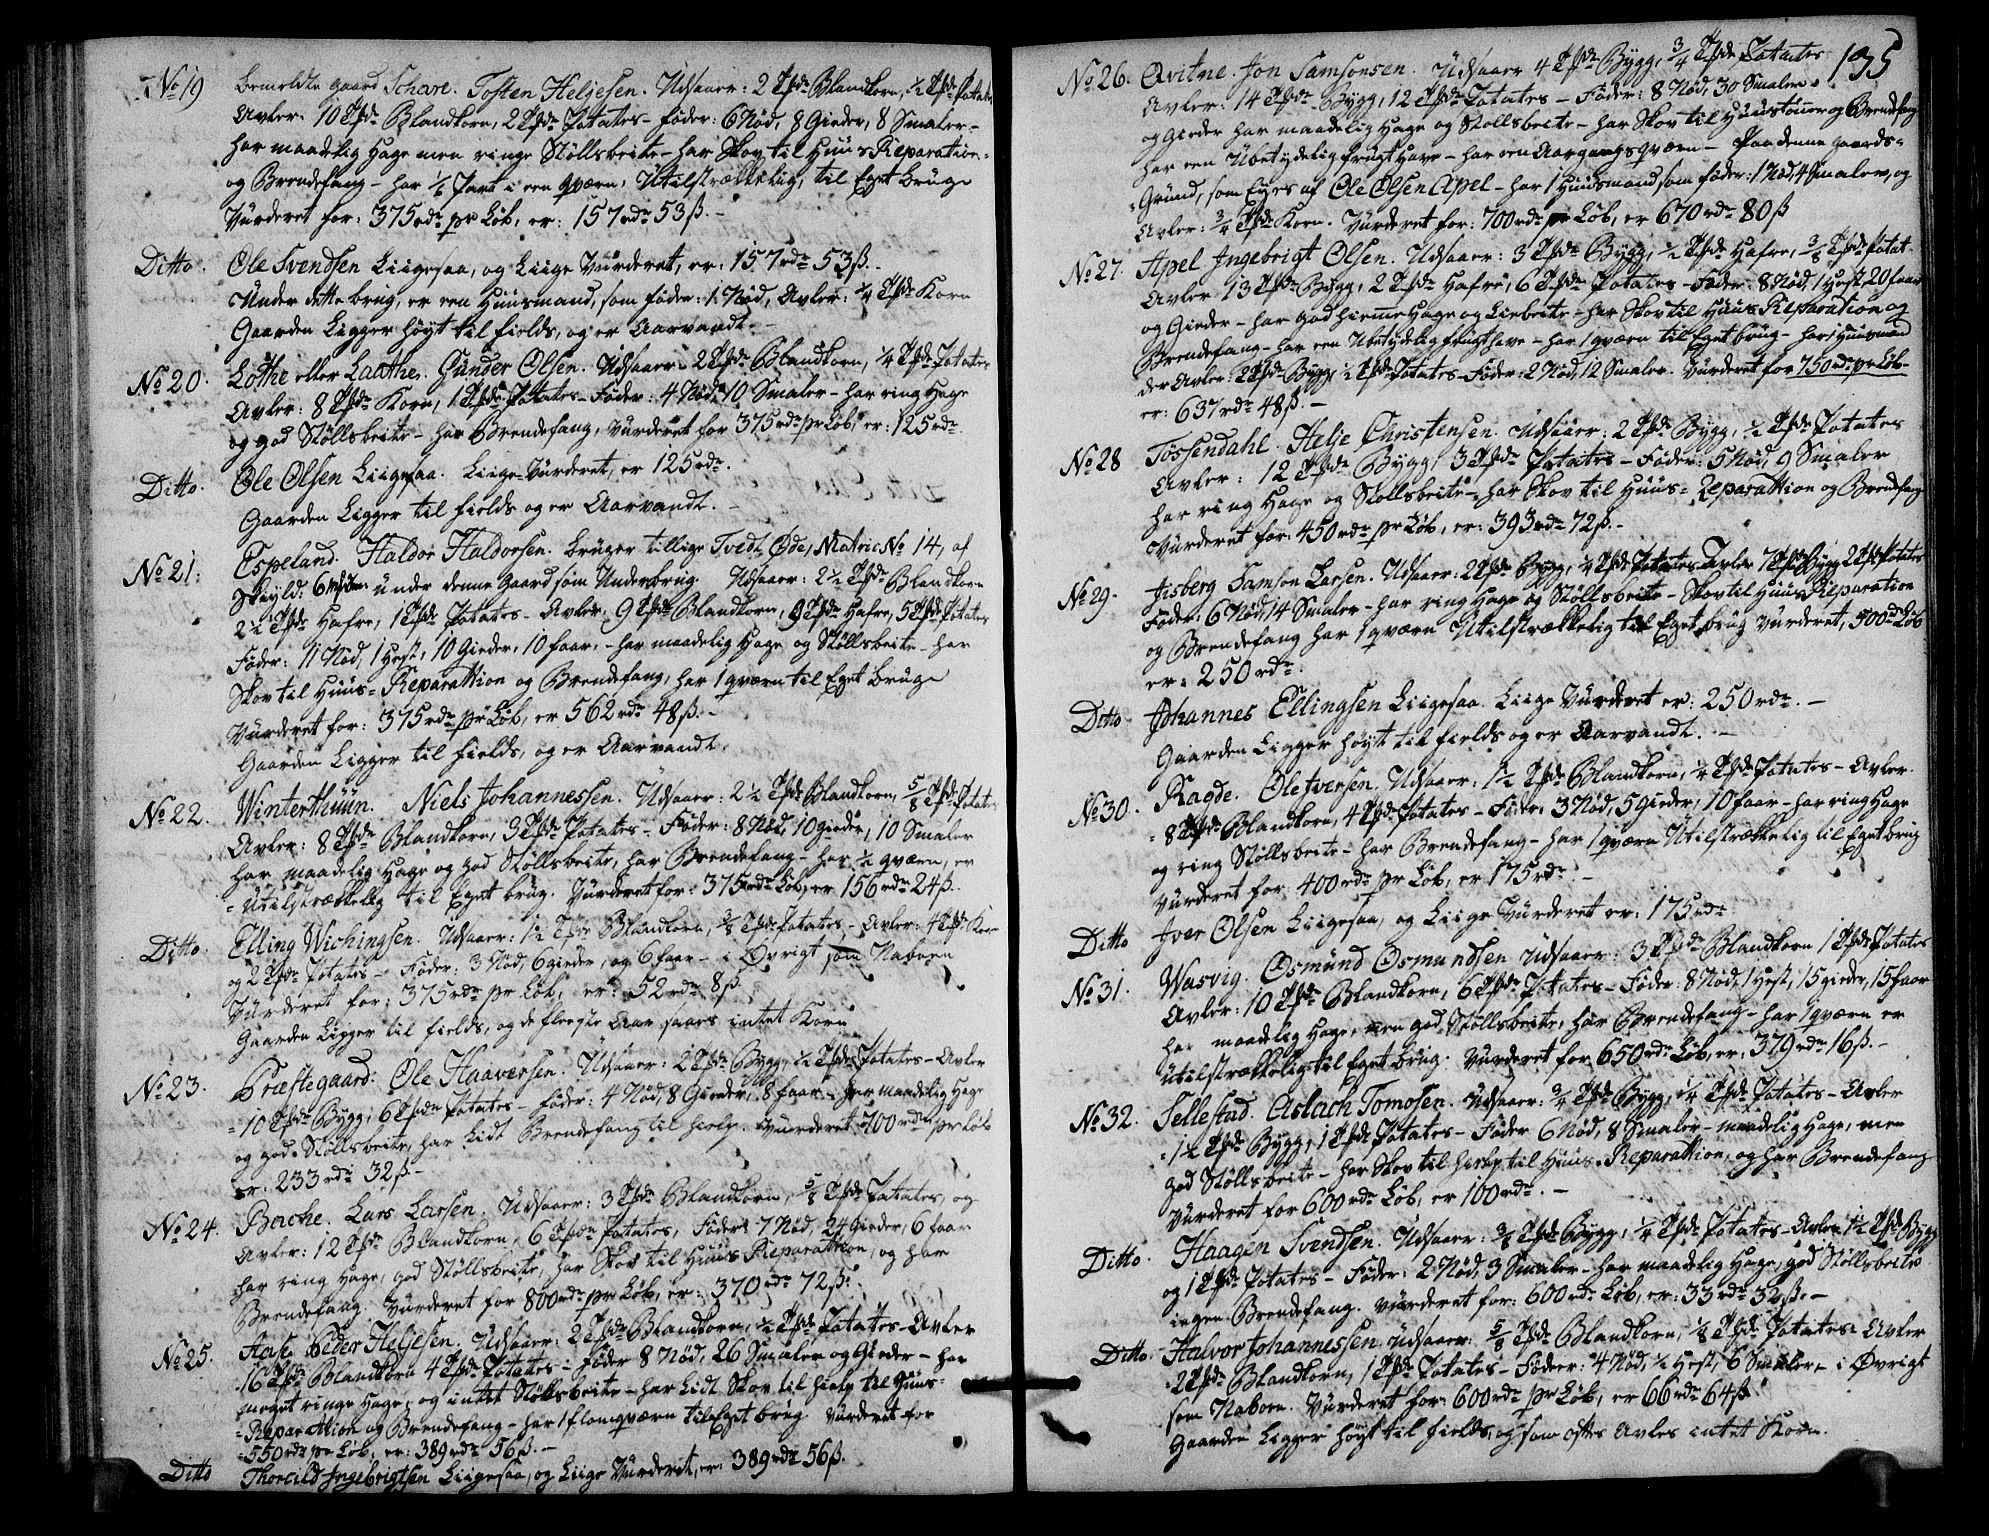 No 19 bemeldte gaard Schare. Tosten Heljesen. Udsaaer: 2 Tønder Blandkorn, ½ Tønde Potates
Avler: 10 Tdr Blandkorn, 2 Tdr Potates – føder: 6 Nød, 8 Gieder, 8 Smaler –
har maadelig Hage men ringe Støllsbeite – har Skov til Huus Reparation
og Brendefang – har Part i een qværn, Utilstrækkelig, til Eget bruge
Vurderet for: 375 rdr pr Løb, er: 157 rdr 53 ß. –
Ditto. Ole Svendsen Liigesaa, og Liige Vurderet, er: 157 rdr 53 ß. –
Under dette brug, er een Huusmand, som føder: 1 Nød, Avler: ¼ Tde Korn
Gaarden Ligger høyt til fields, og er Aarvandt. –
No 20. Lothe eller Laathe. Gunder Olsen. Udsaaer: 2 Tdr Blandkorn, ¼ Tde Potates
Avler: 8 Tdr Korn, 1 Tde Potates – Føder: 4 Nød, 10 Smaler – har ring Hage
og god Støllsbeite – har Brendefang, Vurderet for 375 rdr pr Løb, er: 125 rdr.
Ditto. Ole Olsen Liigesaa. Liige Vurderet, er 125 rdr.
Gaarden Ligger til fields og er Aarvandt. –
No 21: Espeland. Haldor Haldorsen. bruger tillige Tvedt, Øde, Matric No 14, af
Skyld: 6 under denne Gaard som Underbrug. Udsaaer: 2½ Tdr Blandkorn
2½ Tdr Hafre, 1 Tde Potates – Avler: 9 Tdr Blandkorn, 9 Tdr Hafre, 5 Tdr Potates
Føder: 11 Nød, 1 Hest, 10 Gieder, 10 faar, – har maadelig Hage og Støllsbeite – har
Skov til Huus = Reparattion og Brendefang, har 1 qværn til Eget bruge
Vurderet for: 375 rdr pr Løb, er 562 rdr 48 ß. –
Gaarden Ligger til fields, og er Aarvandt.
No 22. Winterthuun. Niels Johannessen. Udsaaer: 2½ Tdr Blandkorn, 5/8 Tde Potates
Avler: 8 Tdr Blandkorn, 3 Tdr Potates – Føder: 8 Nød, 10 gieder, 10 Smaler
har maadelig Hage og god Støllsbeite, har Brendefang – har ½ qværn, er
= Utilstrækkelig til Eget brug. Vurderet for: 375 rdr Løb, er 156 rdr 24 ß. –
Ditto Elling Wichingsen. Udsaaer: 1½ Tdr Blandkorn, 3/8 Tde Potates – Avler: 4 Tdr Korn
og 2 Tdr Potates – Føder: 3 Nød, 6 gieder, og 6 faar – i Øvrigt som Naboen
Vurderet for: 375 rdr pr Løb, er: 52 rdr 8 ß.
Gaarden Ligger til fields, og de fleeste Aar faaes intet Korn
No 23. Præstegaard: Ole Haaversen. Udsaaer: 2 Tdr Bygg, ½ Tde Potates – Avler
= 10 Tdr Bygg, 6 Tdr Potates – føder: 4 Nød, 8 Gieder, 8 faar – har maadelig Hage
og god Støllsbeite, har Lidt Brendefang til hielp. Vurderet 700 rdr pr Løb
er. 233 rdr 32 ß –
No 24. Bache. Lars Larsen. Udsaaer: 3 Tdr Blandkorn, 5/8 Tde Potates, og
Avler: 12 Tdr Blandkorn, 6 Tdr Potates, Føder: 7 Nød, 24 Gieder, 6 faar
har ring Hage, god Støllsbeite, har Skov til Huus Reparattion, og har
Brendefang. Vurderet for 800 rdr pr Løb, er: 370 rdr 72 ß.
No 25. Aase Peder Heljesen. Udsaaer: 2 Tdr Blandkorn, ½ Tde Potates – Avler
16 Tdr Blandkorn 4 Tdr Potates – Føder 8 Nød, 26 Smaler og Gieder – har
meget ringe Hage, og intet Støllsbeite – har Lidt Skov til hielp til Huus-
= Reparattion og Brendefang – har 1 flomqværn til Eget brug. Vurderet for
= 550 rdr pr Løb, er: 389 rdr 56 ß. –
Ditto Thorcild Ingebrigtsen Liigesaa, og Liige Vurderet, er: 389 rdr 56 ß.
195
No 26. Qvitne. Jon Samsonsen. Udsaaer 4 Tdr Bygg, ¾ Tde Potates
Avler: 14 Tdr Bygg, 12 Tdr Potates – Føder: 8 Nød, 30 Smaler
og Gieder har maadelig Hage og Støllsbeite – har Skov til Huustømer og Brendefang
har een Ubetydelig frugt Have – har een Aargangsqværn – Paa denne Gaards =
= Grund, som Eyes af Ole Olsen Apel – har 1 Huusmand som føder: 1 Nød, 4 Smaler, og
Avler: ¾ Tde Korn. Vurderet for: 700 rdr pr Løb, er 670 rdr 80 ß
No 27. Apel Ingebrigt Olsen. Udsaaer: 3 Tdr Bygg, ½ Tde Hafre, 3/8 Tde Potat.
Avler 13 Tdr Bygg, 2 Tdr Hafre, 6 Tdr Potates – Føder: 8 Nød, 1 Hest 20 faar
og Gieder – har god hieme Hage og Liebeite – har Skov til Huus Reparation og
Brendefang – har een Ubetydelig frugt have – har 1 qværn til Eget brug – har 1 Huusmand
der Avler: 2 Tdr Bygg ½ Tde Potates – Føder: 2 Nød, 12 Smaler. Vurderet for 750 rdr pr Løb –
er: 637 rdr 48 ß. –
No 28 Tossendahl. Helje Christensen. Udsaaer: 2 Tdr Bygg, ½ Tde Potates
Avler: 12 Tdr Bygg, 3 Tdr Potates – Føder: 5 Nød, 9 Smaler
har ring Hage og Støllsbeite – har Skov til Huus = Reparattion og Brendefang
Vurderet for: 450 rdr pr Løb, er: 393 rdr 72 ß. –
No 29. Jisberg Samson Larsen. Udsaaer: 2 Tdr Bygg, ¼ Tde Potates Avler 7 Tdr Bygg 2 Tdr Potates
Føder: 6 Nød, 14 Smaler – har ring Hage og Støllsbeite – Skov til Huus Reparation
og Brendefang har 1 qværn Utilstrækkelig til Eget brug Vurderet, 500 rdr Løb
er: 250 rdr.
Ditto. Johannes Ellingsen Liigesaa. Liige Vurderet er: 250 rdr. –
Gaarden Ligger høyt til fields og er Aarvandt. –
No 30. Ragde. Ole Iversen. Udsaaer: 1½ Tdr Blandkorn, ¼ Tde Potates – Avler.
= 8 Tdr Blandkorn, 4 Tdr Potates – Føder: 3 Nød, 5 Gieder, 10 faar – har ring Hage
og ring Støllsbeite – har Brendefang – har 1 qværn Utilstrækkelig til Eget brug
Vurderet for: 400 rdr pr Løb, er 175 rdr. –
Ditto Iver Olsen Liigesaa, og Liige Vurderet er: 175 rdr
No 31. Wasvig. Osmund Osmundsen Udsaaer: 3 Tdr Blandkorn 1 Tde Potates
Avler: 10 Tdr Blandkorn, 6 Tdr Potates – Føder: 8 Nød, 1 Hest, 15 gieder, 15 faar
har maadelig Hage, men god Støllsbeite, har Brendefang – har 1 qværn er
utilstrækkelig til Eget brug. Vurderet for 650 rdr Løb, er: 379 rdr 16 ß. –
No 32. Sellestad. Aslach Tomosen. Udsaaer: ¾ Tde Bygg, ¼ Tde Potates – Avler
= 1½ Tdr Bygg, 1 Tde Potates – Føder 6 Nød, 8 Smaler – maadelig Hage, men
god Støllsbeite – har Skov til hielp til Huus = Reparattion, og har Brendefang
Vurderet for 600 rdr Løb, er 100 rdr. –
Ditto. Haagen Svendsen. Udsaaer: 3/8 Tde Bygg, ¼ Tde Potates – Avler 1½ Tdr Bygg
og 1 Tde Potates – Føder: 2 Nød, 3 Smaler – har maadelig Hage, god Støllsbeite
ingen Brendefang. Vurderet for: 600 rdr Løb, er: 33 rdr 32 ß. –
Ditto Halvor Johannessen. Udsaaer: 5/8 Tde Blandkorn, 1/8 Tde Potates – Avler
2 Tdr Blandkorn, 1 Tde Potates – Føder: 4 Nød, ½ Hest, 6 Smaler, – i Øvrigt
som Naboen. Vurderet for: 600 rdr pr Løb, er 66 rdr 64 ß.
Gaarden Ligger høyt til fields, og som oftes Avles intet Korn.